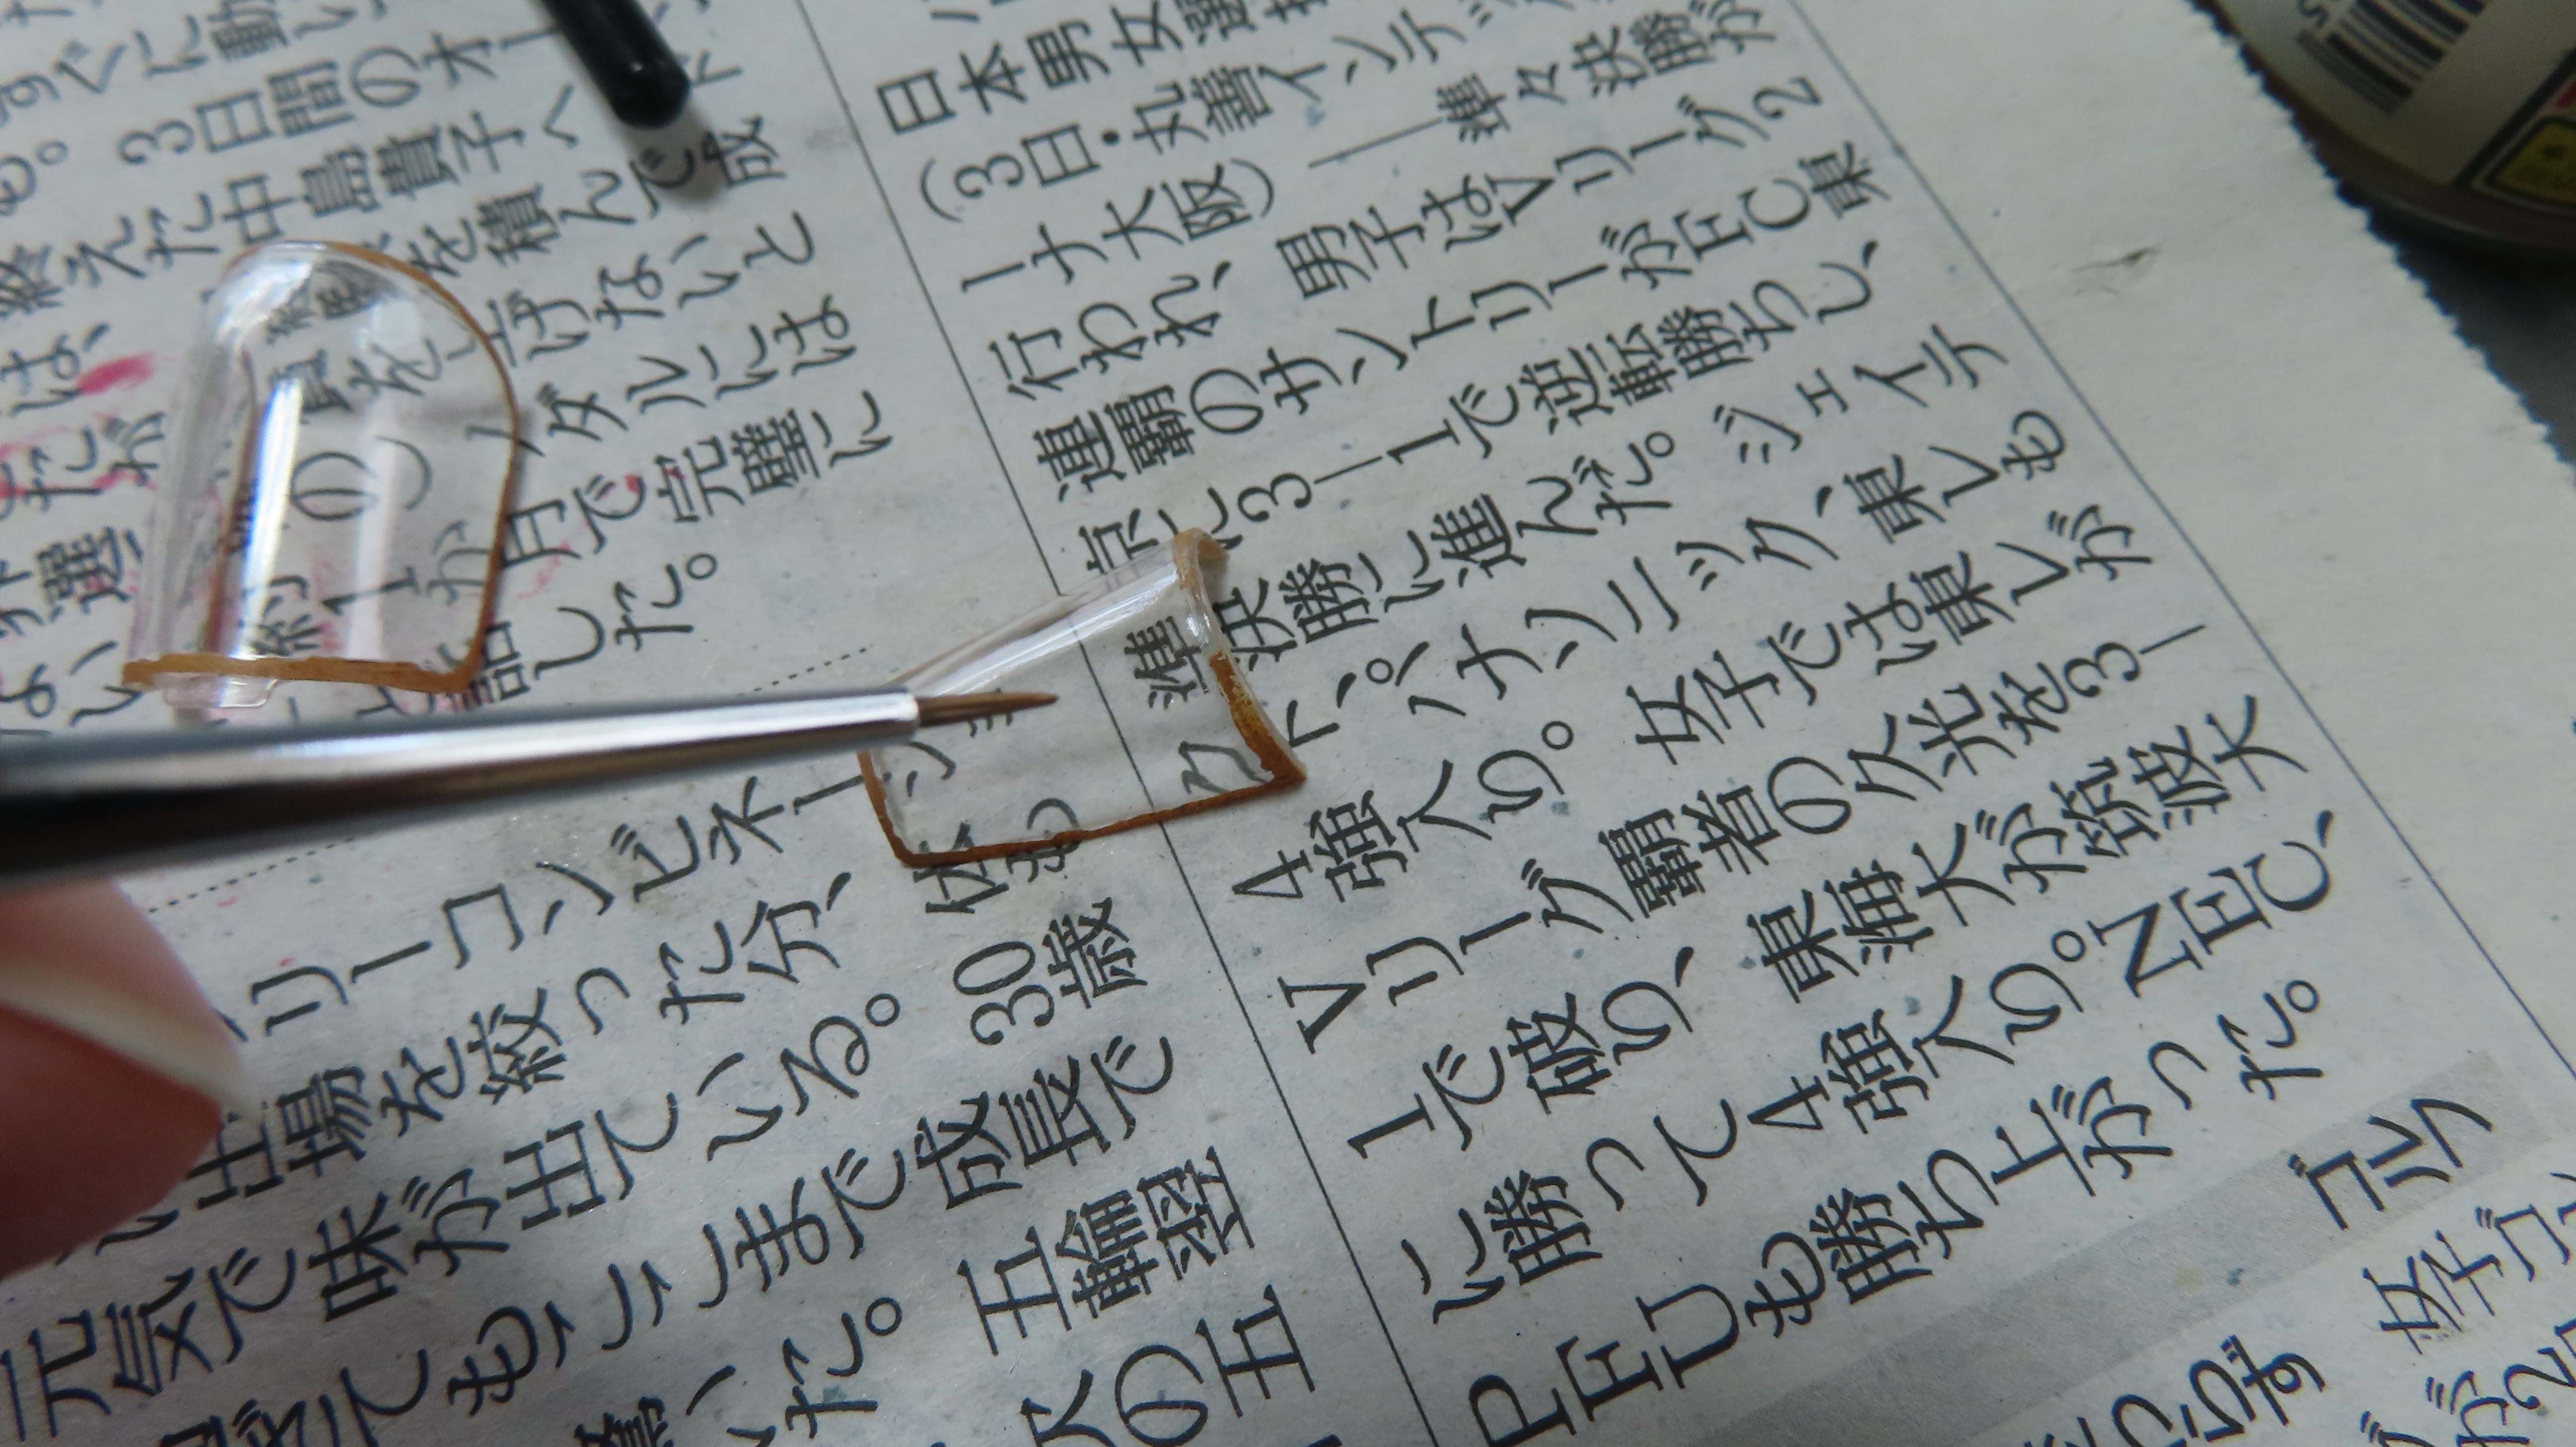 すぐに動い
も。3日間のオー
終えた中島貴子
は、を積んで成
を上げないと
選 の メダルには
い、約1か月で完璧に
と話した。
リーコンビネーショ
い出場を絞った分、体も
元気で味が出ている。30歳
てもここまで成長で
た。五輪翌
の五
日本男女選
（3日・丸善インテッ
ーナ大阪）――準々決勝が
行われ、男子はVリーグ2
連覇のサントリーがFC東
京に3―1で逆転勝ちし、
準決勝に進んだ。ジェイテ
クト、パナソニック、東レも
4強入り。女子では東レが
Vリーグ覇者の久光を3―
1で破り、東海大が筑波大
に勝って4強入り。NEC、
PFUも勝ち上がった。
ゴルフ
女子ゴ